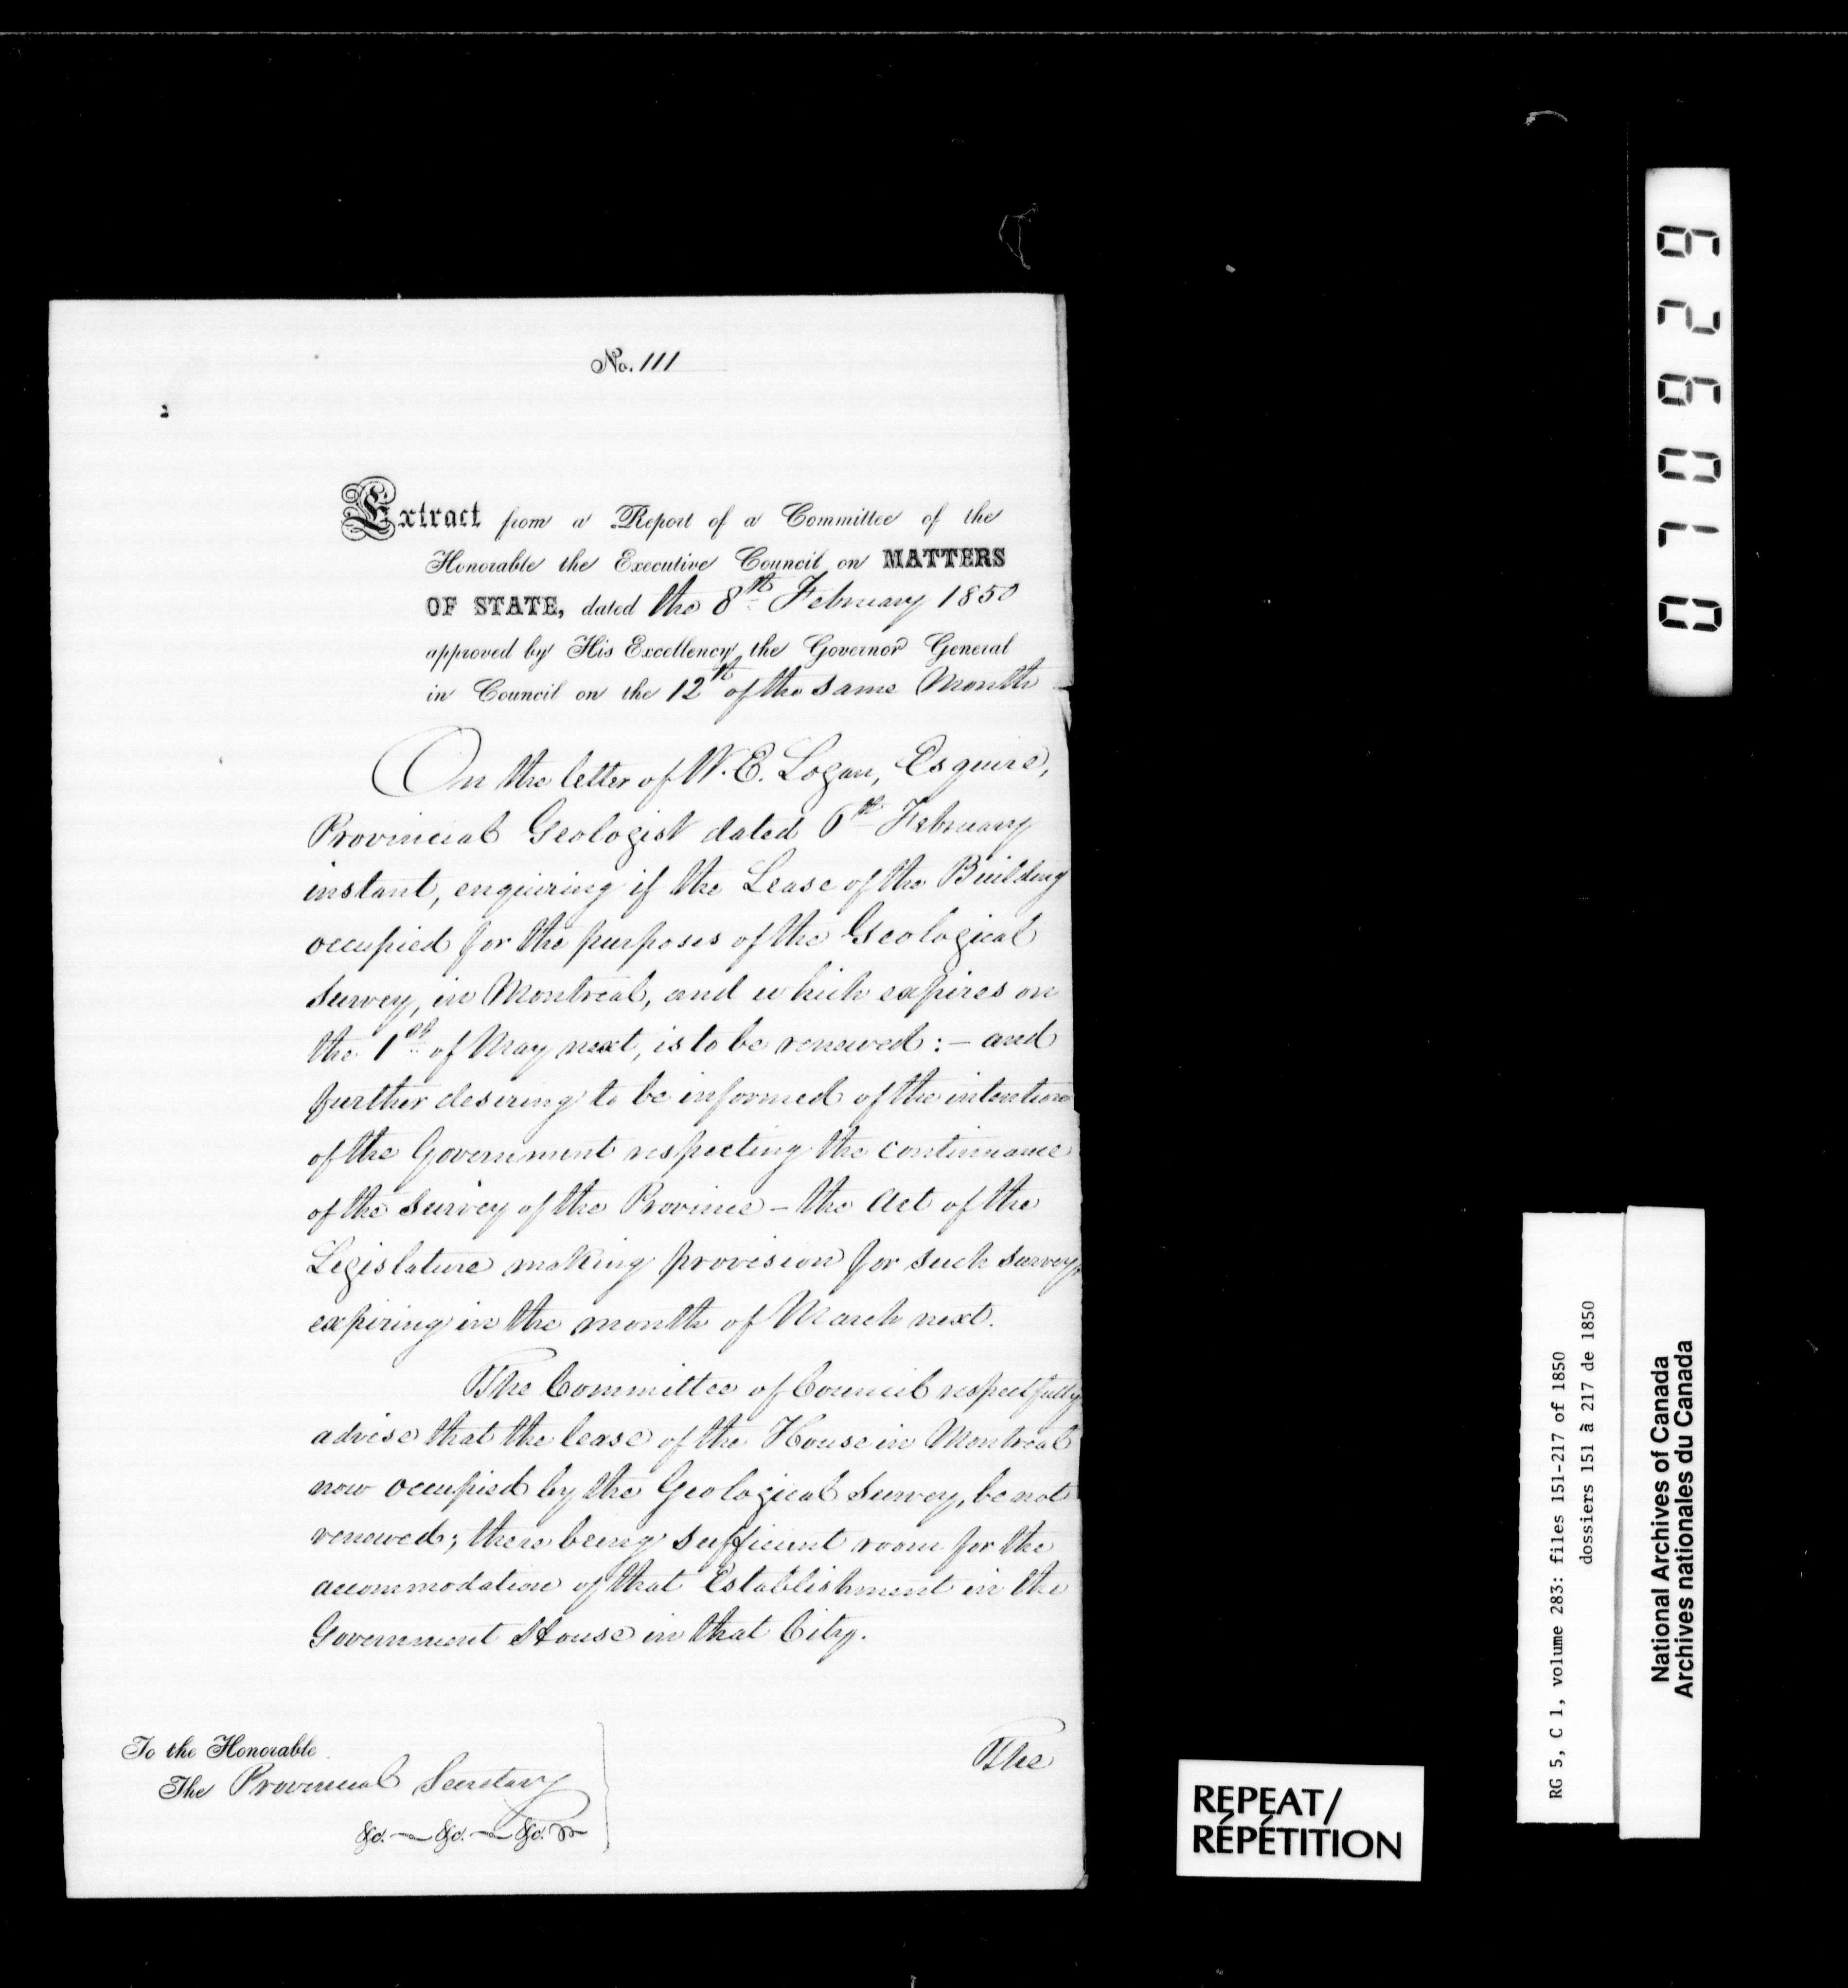 No. 111
Extract from a Report of a Committee of the
Honorable the Executive Council on MATTERS
OF STATE, dated the 8th February 1850
approved by His Excellency the Governor General
in Council on the 12th of the same Month
On the letter of W. E. Logan, Esquire,
Provincial Geologist dated 6th February
instant, enquiring if the Lease of the Building
occupied for the purposes of the Geological
Survey, in Montreal, and which expires on
the 1st of May next, is to be renewed :– and
further desiring to be informed of the intention
of the Government respecting the continuance
of the Survey of the Province – the Act of the
Legislature making provision for such survey,
expiring in the month of March next.
The Committee of Council respectfully
advise that the lease of the House in Montreal
now occupied by the Geological Survey, be not
renewed; there being sufficient room for the
accommodation of that Establishment in the
Government House in that City.
To the Honorable
The Provincial Secretary
&c. — &c. — &c.
The
REPEAT/
RÉPÉTITION
017 0629
RG 5, C 1, volume 283: files 151-217 of 1850
dossiers 151 à 217 de 1850
National Archives of Canada
Archives nationales du Canada